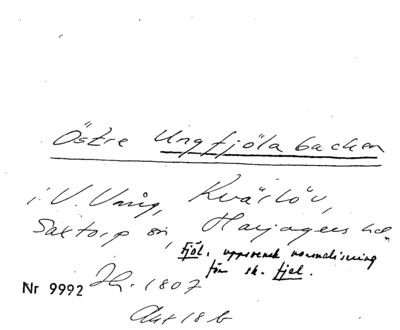 Östre Ungfjöla backen
i V. Vång, Kvärlöv,
Saxtorp sn, Harjagers hd
fjöl, uppsvensk normalisering
för sk. fjel.
Nr 9992
1807
Akt 18 b